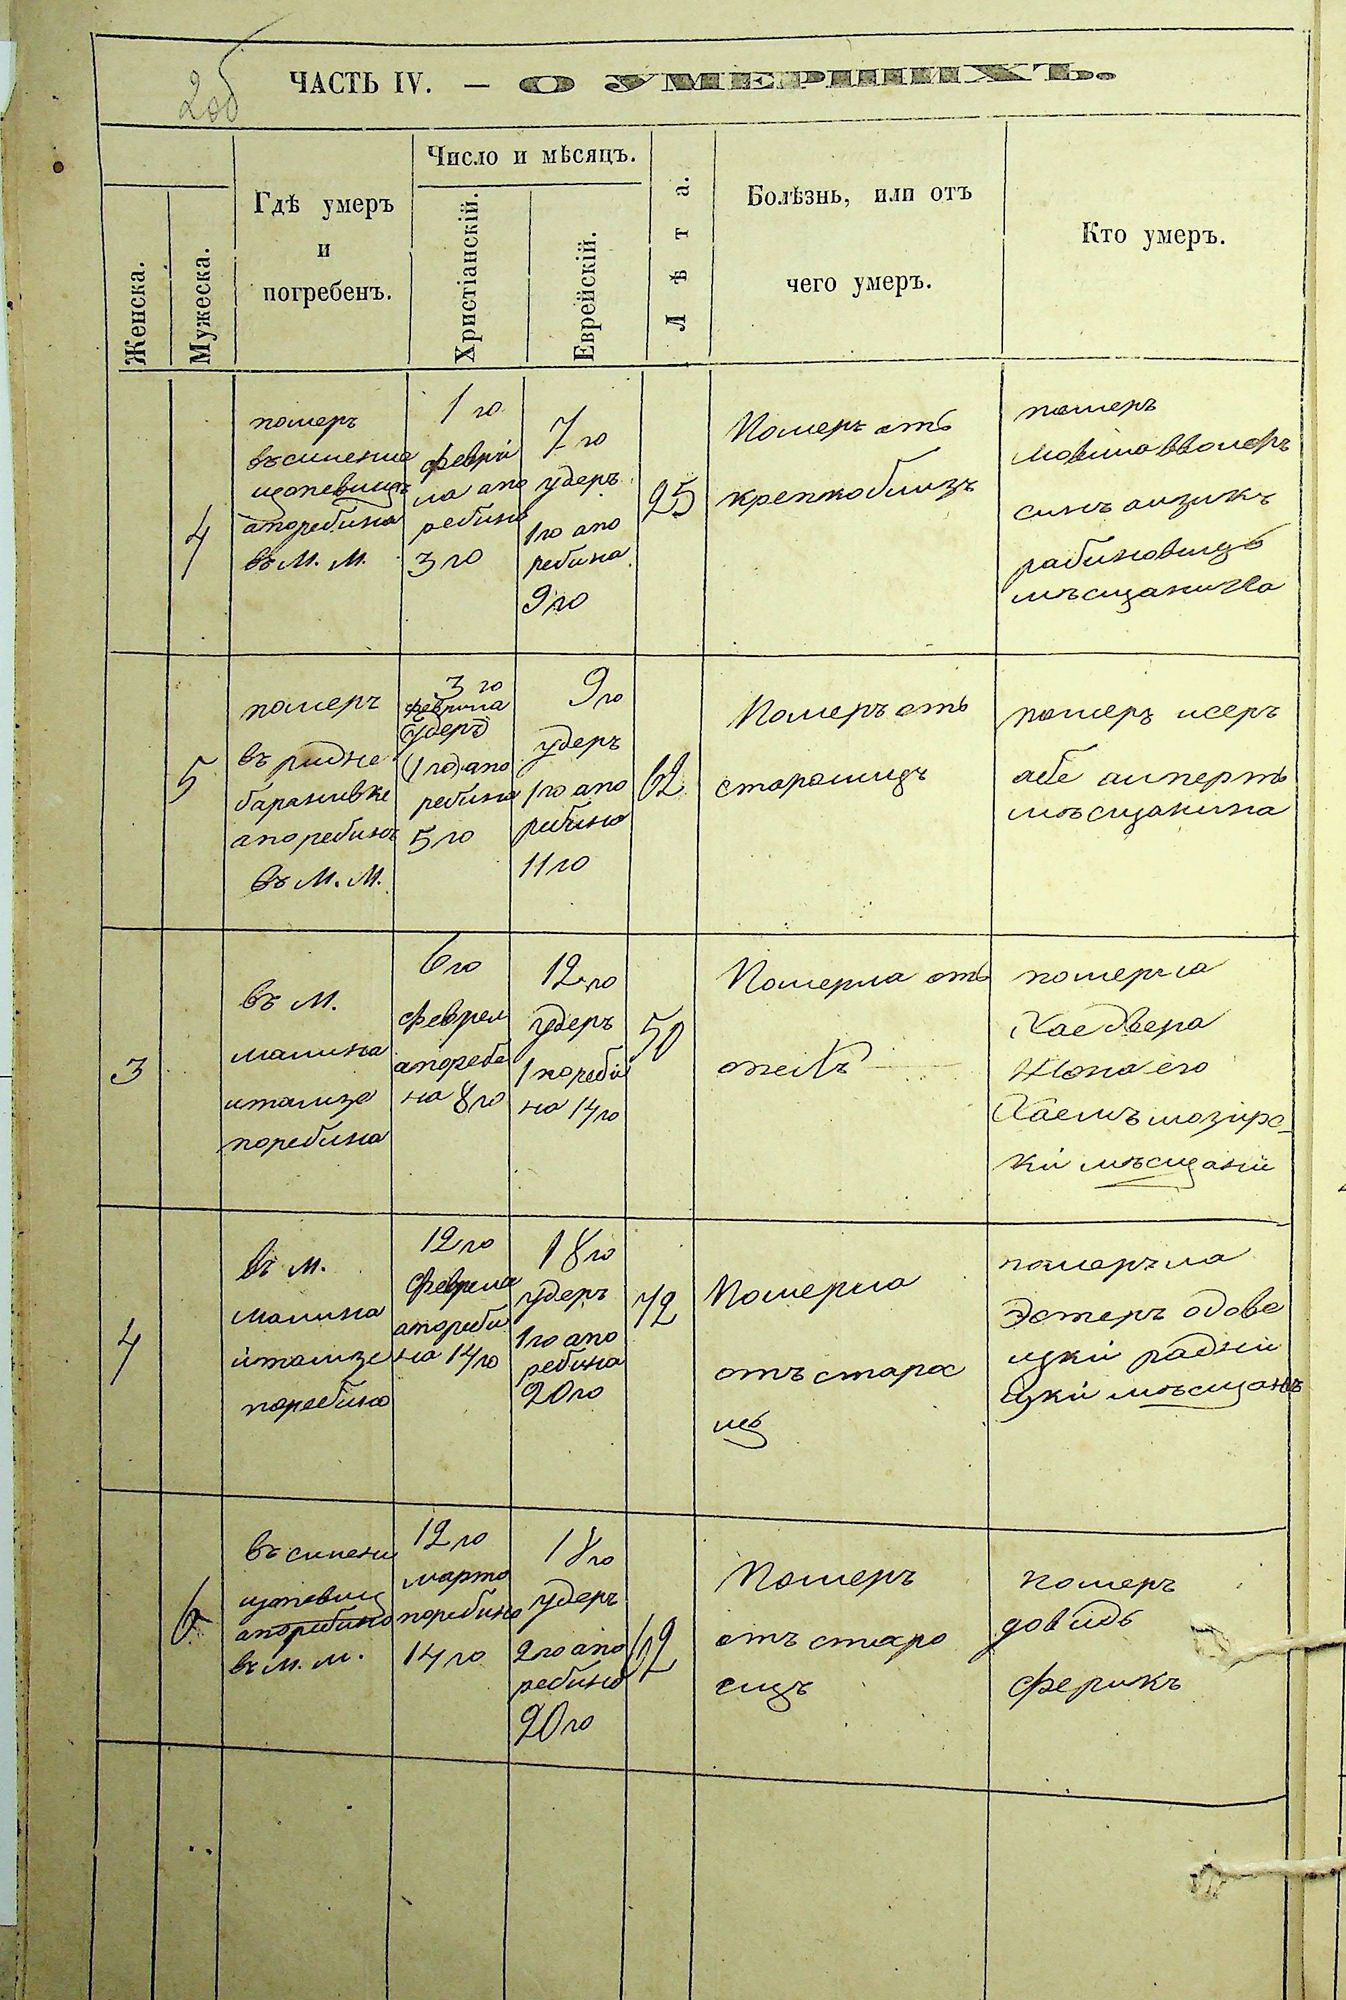 2об
ЧАСТЬ IV. — О УМЕРШИХЪ.
Женска.
Мужеска.
Гдѣ умеръ
и
погребенъ.
Число и мѣсяцъ.
Христіанскій.
Еврейскій.
Лѣта.
Болѣзнь, или отъ
чего умеръ.
Кто умеръ.
4
померъ
апоребина
въ М. М.
1 го
феврй
ла апо
ребина
3 го
7 го
удеръ
1 го апо
ребина
9 го
25
Померъ отъ
померъ
синъ аизикъ
рабиновицъ
мъсщанина
5
померъ
въ рудне
баранивке
апоребинъ
въ М. М.
3 го
феврила
(удеръ)
(1 го) апо
ребина
5 го
9 го
удеръ
1 го апо
ребина
11 го
62
Померъ отъ
померъ исеръ
абе алперть
мъсщанина
3
въ М.
малина
поребина
6 го
феврел
апореби
на 8 го
12 го
удеръ
1 поребй
на 14 го
50
Померла отъ
померла
Хае двера
жона его
Хаемъ мозирс-
кй мъсщанй
4
въ М.
малина
поребина
12 го
феврела
апореби
на 14 го
18 го
удеръ
1 го апо
ребина
20 го
72
Померла
отъ старос
ць
померъла
Эстеръ одове
цкй радни
цкй мъсщанъ
6
апоребина
въ М. М.
12 го
марта
поребина
14 го
18 го
удеръ
2 го апо
ребина
20 го
62
Померъ
отъ старо
сцъ
померъ
довидь
ферикъ